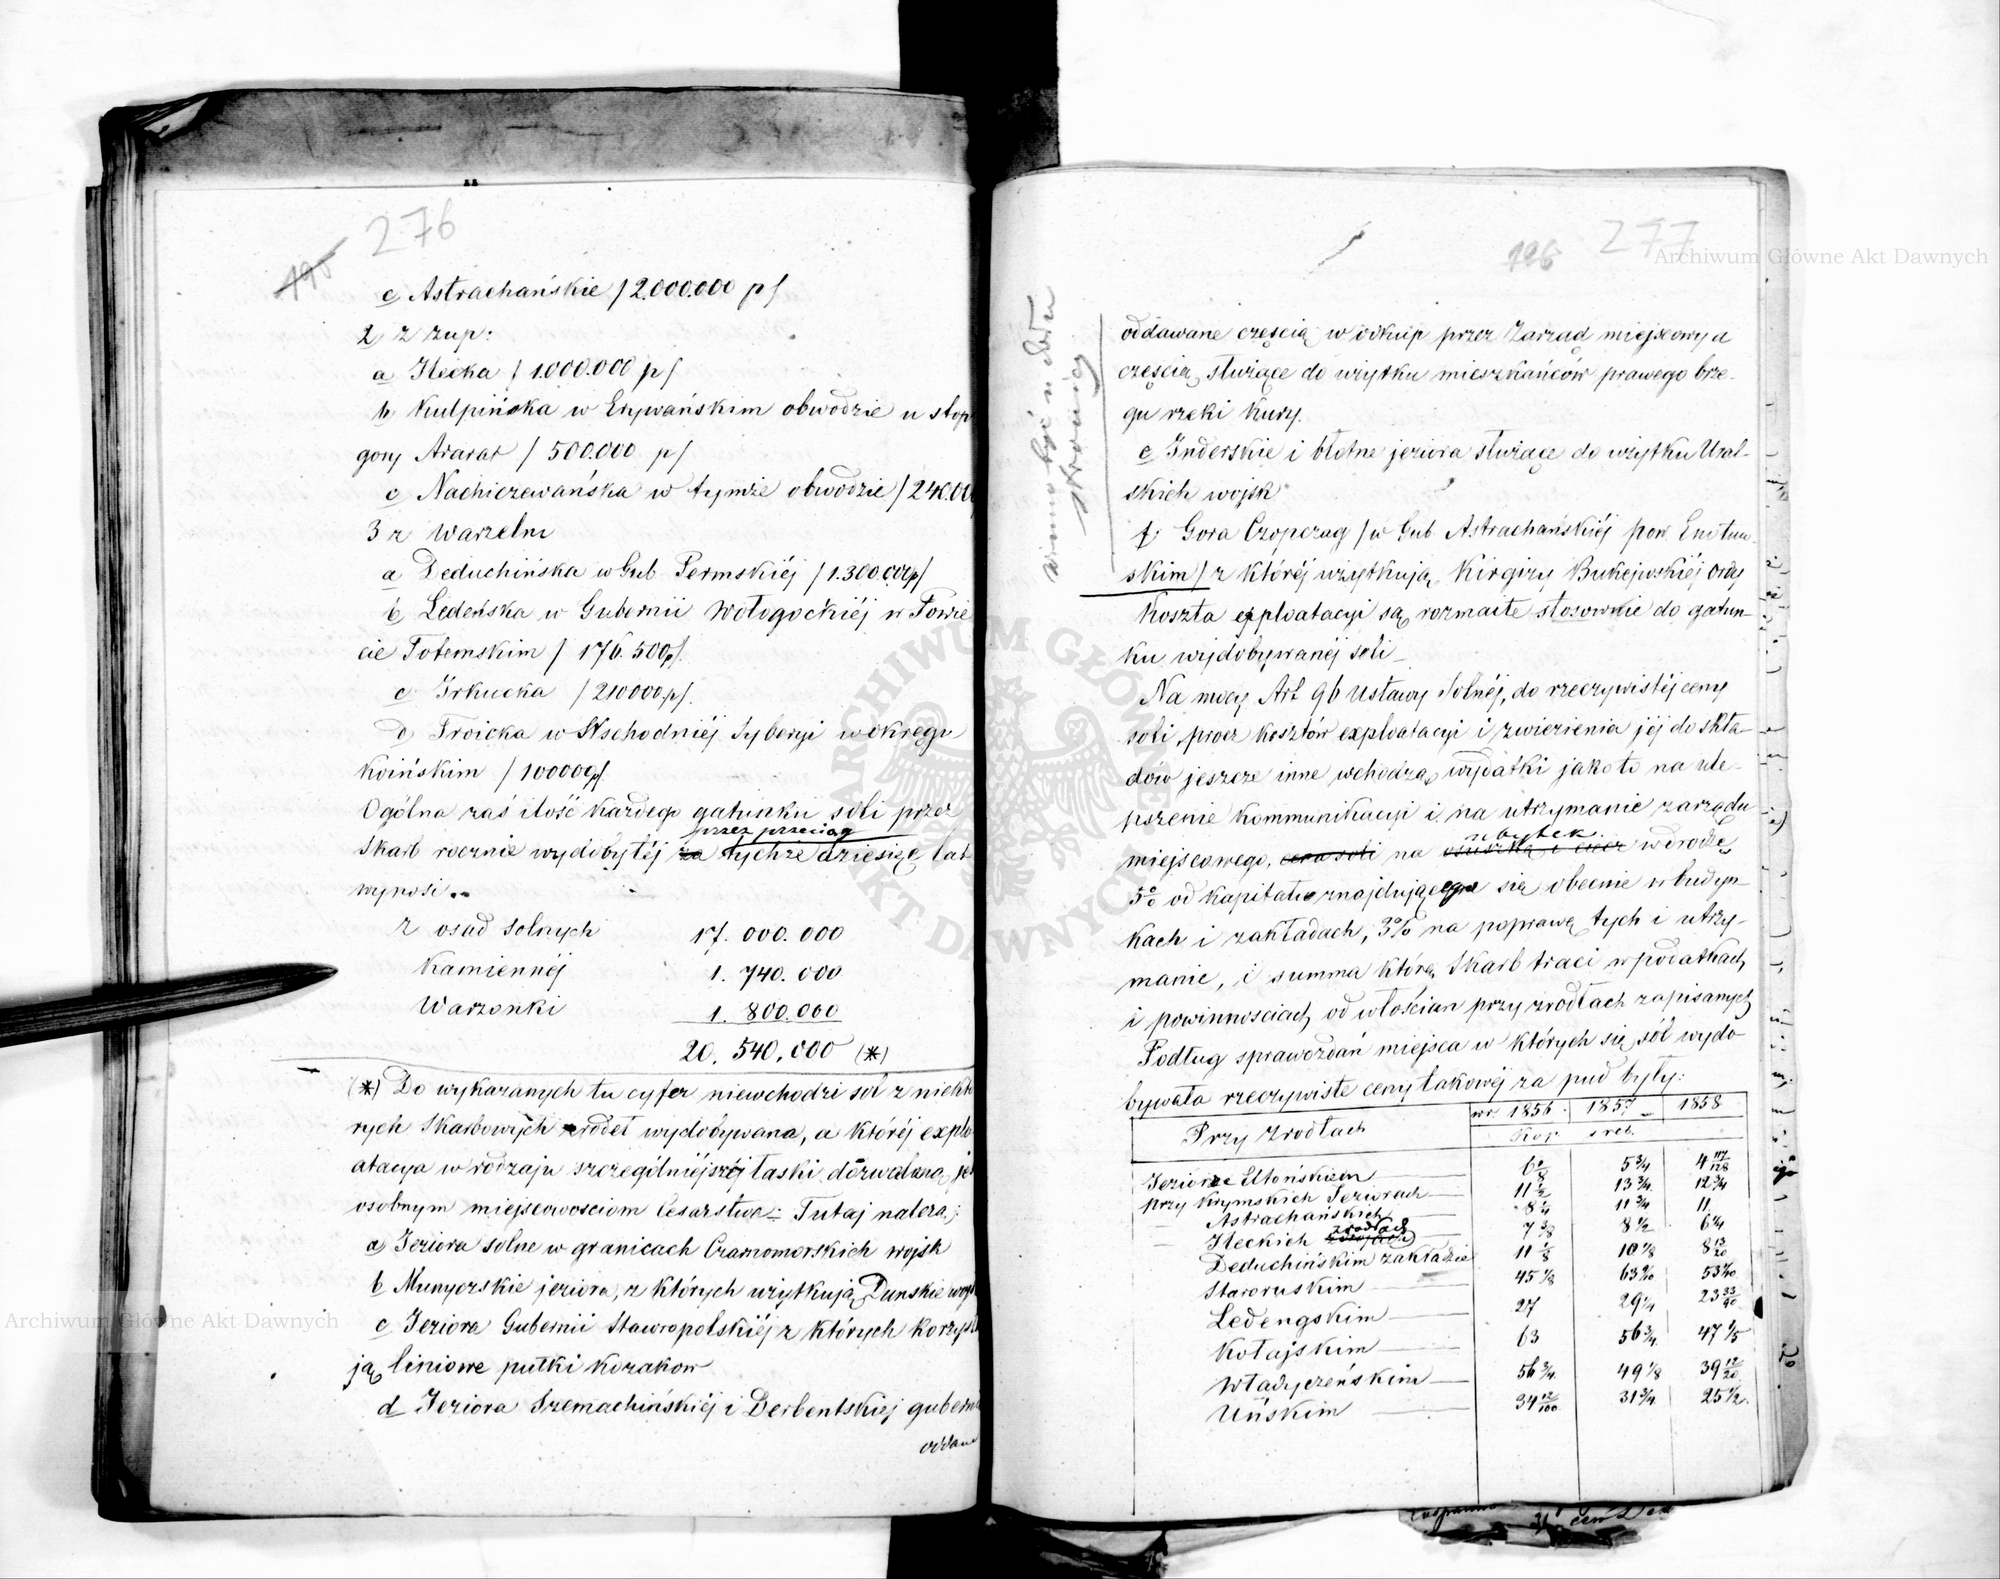 276
195
c Astrachańskie / 2.000.000 p/
2, z żup:
a Ilecka / 1.000.000 p/
b. Kulpińska w Erywańskim obwodzie u stop
gory Ararat / 500.000 p/
c Nachiczewańska w tymże obwodzie / 240.00
3 z Warzelni
a Deduchińska w Gub Permskiéj / 1.300.000 p/
b, Ledeńska w Gubernii Wołogockiéj w Powie
cie Totemskim / 176.500 p/.
c Irkucka / 210000 p/.
d Troicka w Wschodniéj Syberyi w okręgu
Koińskim / 100000 p/
Ogólna zaś ilość każdego gatunku soli przez
przez przeciąg
Skarb rocznie wydobytéj za tychże dziesięć lat
wynosi
z osad solnych 17.000.000
Kamiennéj 1.740.000
Warzonki 1.800.000
20.540.000 (*)
(*) Do wykazanych tu cyfer niewchodzi sól z niektó
rych Skarbowych źrodeł wydobywana, a któréj explo
atacya w rodzaju szczególniéjszéj łaski dozwalana je
osobnym miejscowosciom Cesarstwa: Tutaj należą:
a, Jeziora solne w granicach Czarnomorskich wojsk
b Munyczskie jeziora, z których użytkują Dunskie wojs
c Jeziora Gubernii Stawropolskiéj z których korzysta
ją liniowe pułki kozakow
d Jeziora Szemachińskiéj i Derbentskiej guberni
oddane
277
196
Archiwum Główne Akt Dawnych
winno być na dole
stronicy
oddawane częścią w odkup przez Zarząd miejscowy a
częścią służące do użytku mieszkańców prawego brze-
gu rzeki Kury.
e Inderskie i błotne jeziora służące do użytku Ural-
skich wojsk
f. Gora Czopczag / w Gub Astrachańskiéj pow. Enotaw-
skim / z któréj użytkują Kirgizy Bukejewskiéj Ordy
Koszta exploatacyi są rozmaite stosownie do gatun-
ku wydobywanéj soli
Na mocy Art 96 Ustawy Solnéj, do rzeczywistéj ceny
soli, procz kosztów exploatacyi i zwiezienia jéj do skła-
dów jeszcze inne wchodzą wydatki jako to na ule-
pszenie kommunikacyi i na utrzymanie zarządu
ubytek
miejscowego, cena soli na w drodze,
5% od kapitału znajdującego się obecnie w budyn-
kach i zakładach, 3% na poprawę tych i utrzy-
manie, i summa którą Skarb traci w podatkach
i powinnosciach od włościan przy źrodłach zapisanych
Podług sprawozdań miejsca w których się sól wydo
bywała rzeczywiste ceny takowéj za pud były:
Przy źrodłach w r. 1856 1857 1858
Kop. sreb.
Jeziorze Eltońskiem 6 5 3/4 4 117/128
przy Krymskich Jeziorach 11 1/2 13 3/4 12 3/4
Astrachańskich 8 1/4 11 3/4 11
źrodłach
Ileckich 7 3/8 8 1/2 6 1/4
Deduchińskim zakładzie 11 1/8 10 1/8 8 13/20
Staroruskim 45 1/8 63 53
Ledengskim 27 29 1/4 23 33/40
Kołajskim 63 56 3/4 47 1/5
Władyczeńskim 56 3/4 49 1/8 39 12/20
Uńskim 34 12/100 31 3/4 25 1/2
ARCHIWUM GŁÓWNE AKT DAWNYCH
Archiwum Główne Akt Dawnych